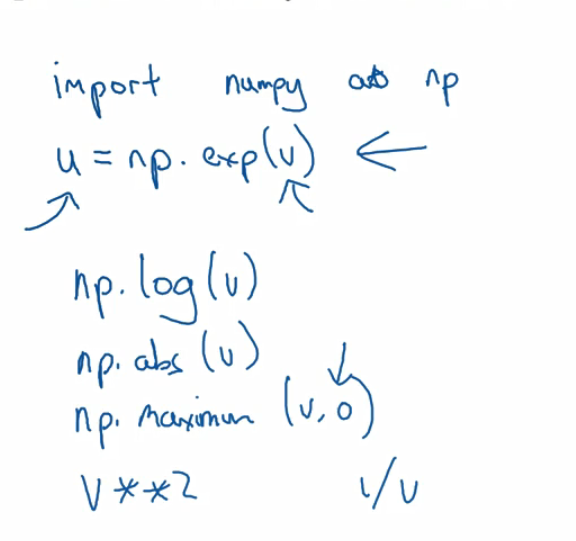 import numpy as np
u = np.exp(v)
np.log(v)
np.abs(v)
np.maximum(v, 0)
v**2 1/v